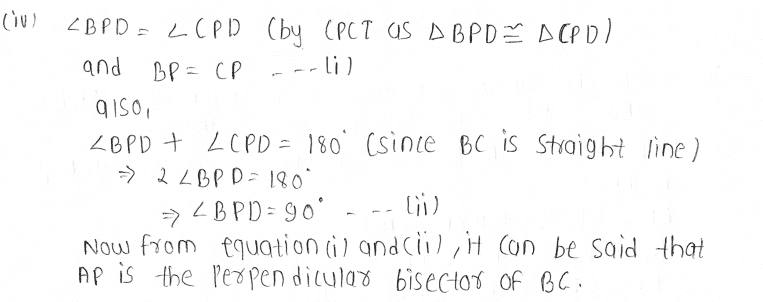 (iv) ∠BPD = ∠CPD (by CPCT as ΔBPD ≅ ΔCPD)
and BP = CP ---- (i)
also,
∠BPD + ∠CPD = 180° (since BC is straight line)
⇒ 2∠BPD = 180°
⇒ ∠BPD = 90° ---- (ii)
Now from equation (i) and (ii), it can be said that
AP is the perpendicular bisector of BC.